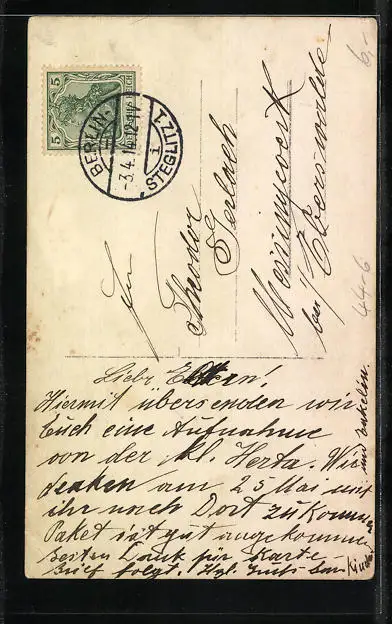 5
5
BERLIN-
-3.4.14.12-1N.
STEGLITZ 1
i
An
Theodor
Gerlach
Messingwerk
bei Eberswalde
6,-
44-6
Liebe Eltern!
Hiermit übersenden wir
Euch eine Aufnahme
von der kl. Herta. Wir
denken am 25 Mai mit
ihr nach Dort zu kommen
Paket ist gut angekommen
Besten Dank für Karte
Brief folgt. Hzl. Grüße
Kinder
und Enkelin.